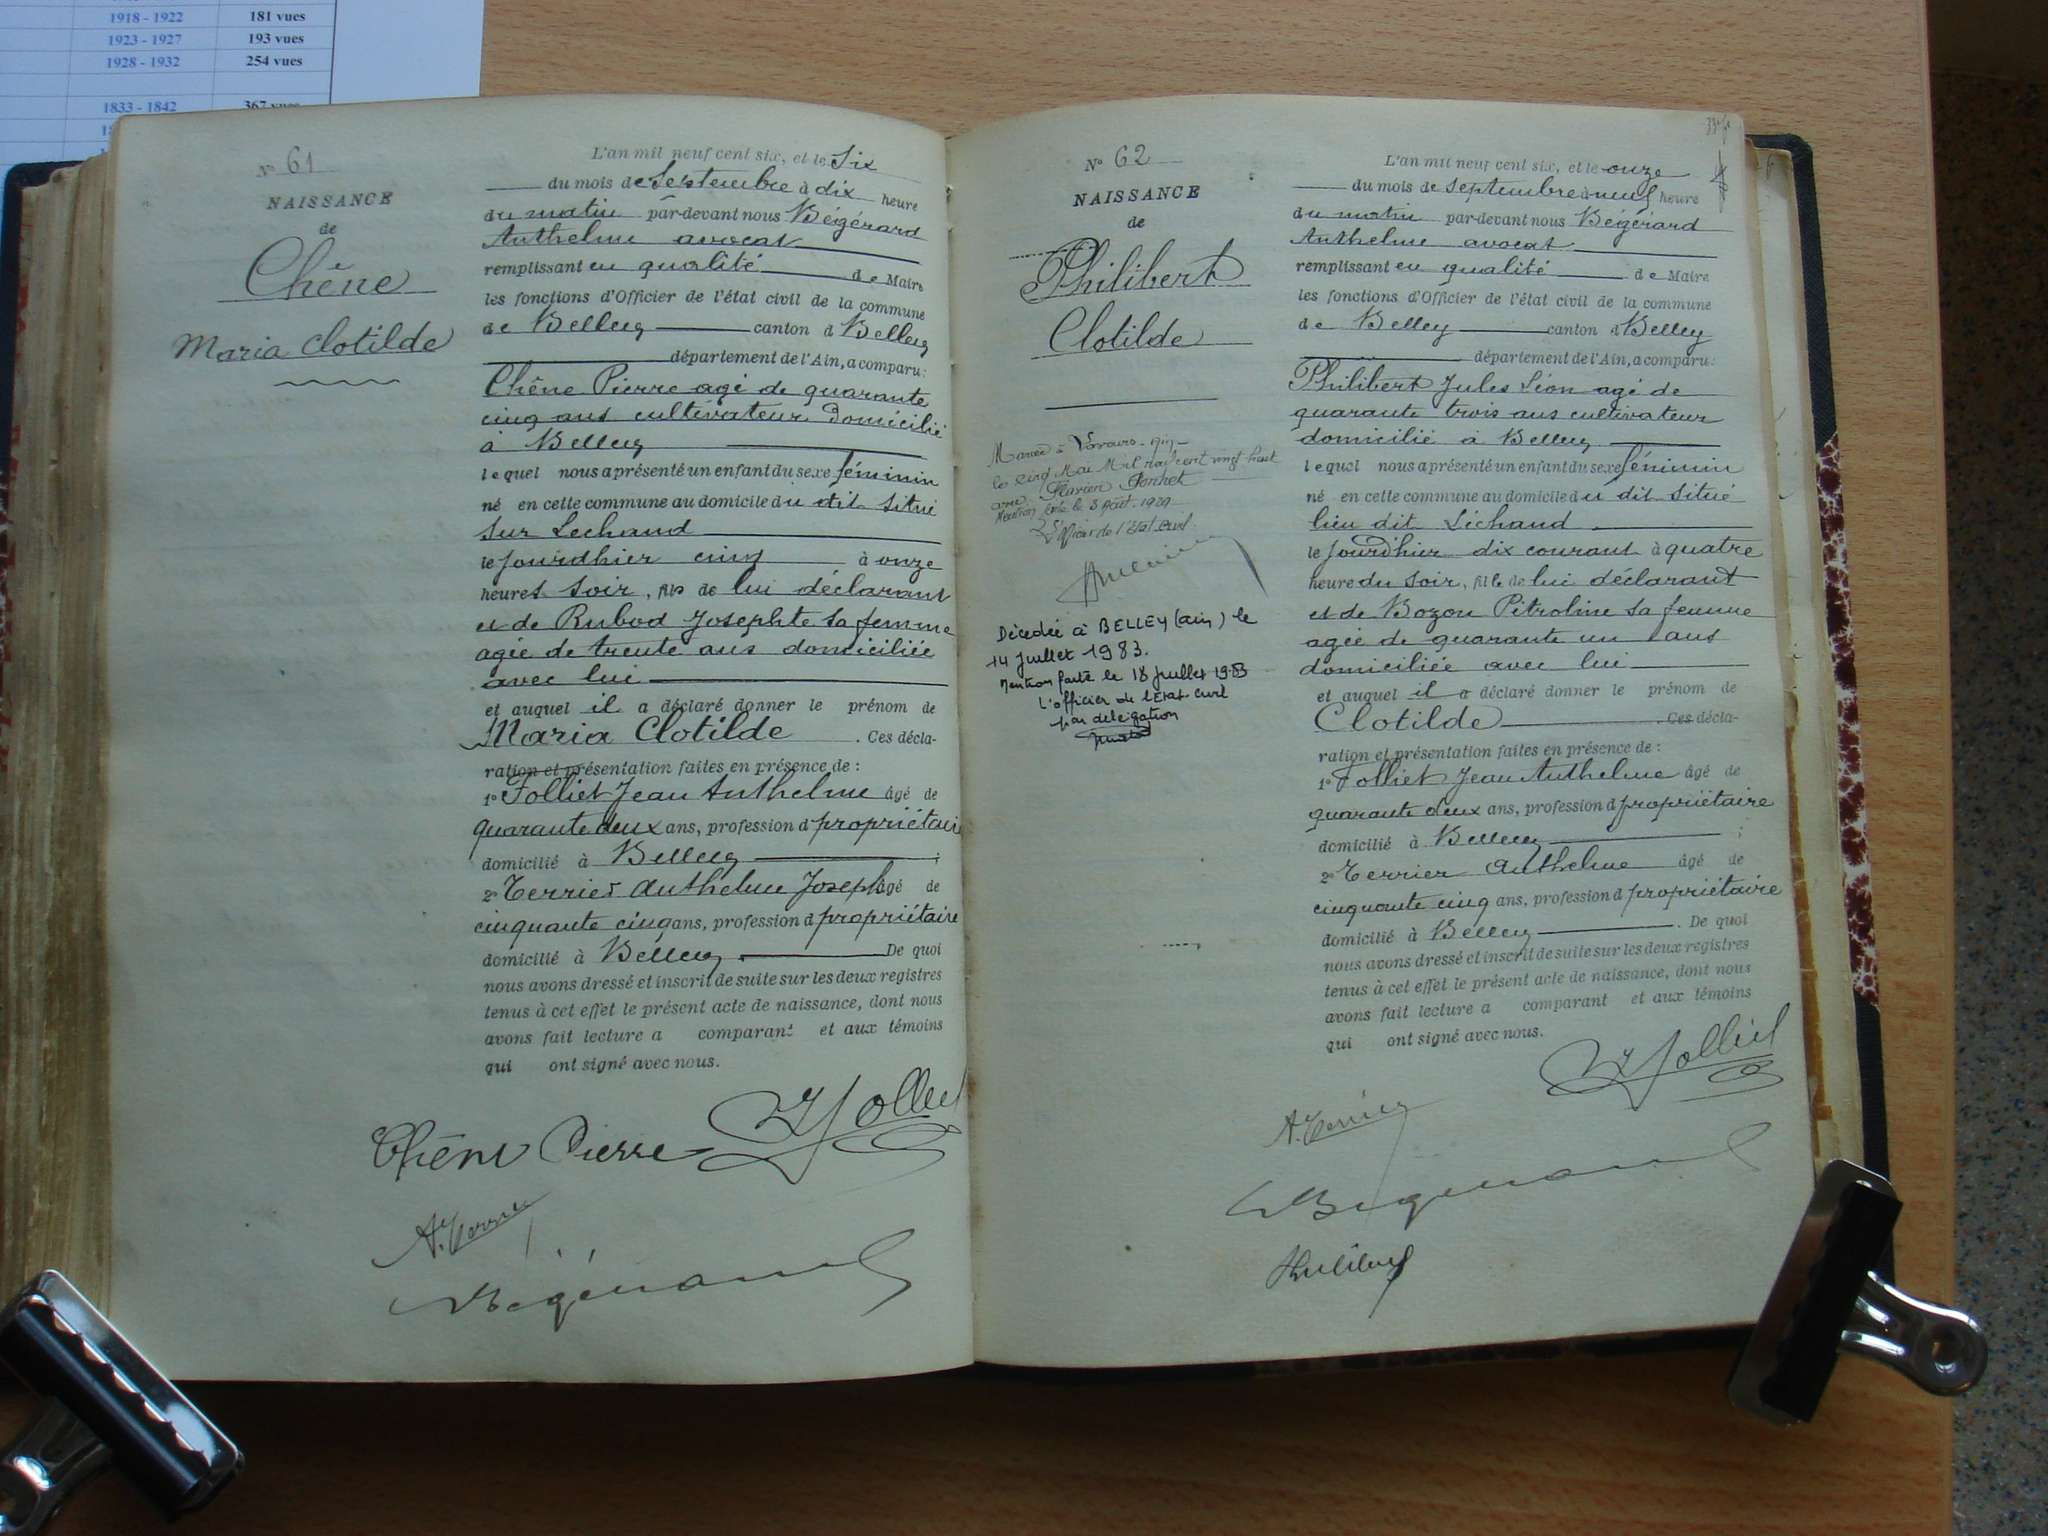 1918 - 1922 181 vues
1923 - 1927 193 vues
1928 - 1932 254 vues
1833 - 1842 367 vues
N° 61
NAISSANCE
de
Chêne
Maria Clotilde
L'an mil neuf cent six, et le Six
du mois de Septembre à dix heure
du matin par-devant nous Bégérard
Anthelme avocat
remplissant en qualité de Maire
les fonctions d'Officier de l'état civil de la commune
de Belley canton d Belley
département de l'Ain, a comparu:
Chêne Pierre agé de quarante
cinq ans cultivateur Domicilié
à Belley
lequel nous a présenté un enfant du sexe féminin
né en cette commune au domicile du dit situé
sur Lechaud
le jourdhier cinq à onze
heures soir, fils de lui déclarant
et de Rubod Josephte sa femme
agée de trente ans domiciliée
avec lui
et auquel il a déclaré donner le prénom de
Maria Clotilde . Ces décla-
ration et présentation faites en présence de :
1° Folliet Jean Anthelme âgé de
quarante deux ans, profession d propriétaire
domicilié à Belley ;
2° Terrier Anthelme Joseph âgé de
cinquante cinq ans, profession d propriétaire
domicilié à Belley De quoi
nous avons dressé et inscrit de suite sur les deux registres
tenus à cet effet le présent acte de naissance, dont nous
avons fait lecture a comparant et aux témoins
qui ont signé avec nous.
Chêne Pierre Folliet
A. Terrier
Bégérard
N° 62
NAISSANCE
de
Philibert
Clotilde
le cinq Mai Mil neuf cent vingt huit
avec Flavien
Mention faite le 3 Août 1929
L'Officier de l'Etat Civil
Décédée à BELLEY (ain) le
14 juillet 1983.
Mention faite le 18 juillet 1983
L'officier de l'Etat civil
par délégation
L'an mil neuf cent six, et le onze
du mois de septembre à neuf heure
du matin par-devant nous Bégérard
Anthelme avocat
remplissant en qualité de Maire
les fonctions d'Officier de l'état civil de la commune
de Belley canton d Belley
département de l'Ain, a comparu:
Philibert Jules Léon agé de
quarante trois ans cultivateur
domicilié à Belley
lequel nous a présenté un enfant du sexe féminin
né en cette commune au domicile du dit situé
lieu dit Lichaud
le jourd'hier dix courant à quatre
heure du soir, fille de lui déclarant
et de Bozon Pétroline sa femme
agée de quarante un ans
domiciliée avec lui
et auquel il a déclaré donner le prénom de
Clotilde . Ces décla-
ration et présentation faites en présence de :
1° Folliet Jean Anthelme âgé de
quarante deux ans, profession d propriétaire
domicilié à Belley ;
2° Terrier Anthelme âgé de
cinquante cinq ans, profession d propriétaire
domicilié à Belley . De quoi
nous avons dressé et inscrit de suite sur les deux registres
tenus à cet effet le présent acte de naissance, dont nous
avons fait lecture a comparant et aux témoins
qui ont signé avec nous.
Folliet
A. Terrier
Bégérard
Philibert